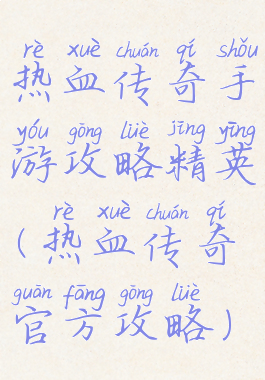 rè xuè chuán qí shǒu
热血传奇手
yóu gōng lüè jīng yīng
游攻略精英
rè xuè chuán qí
(热血传奇
guān fāng gōng lüè
官方攻略)